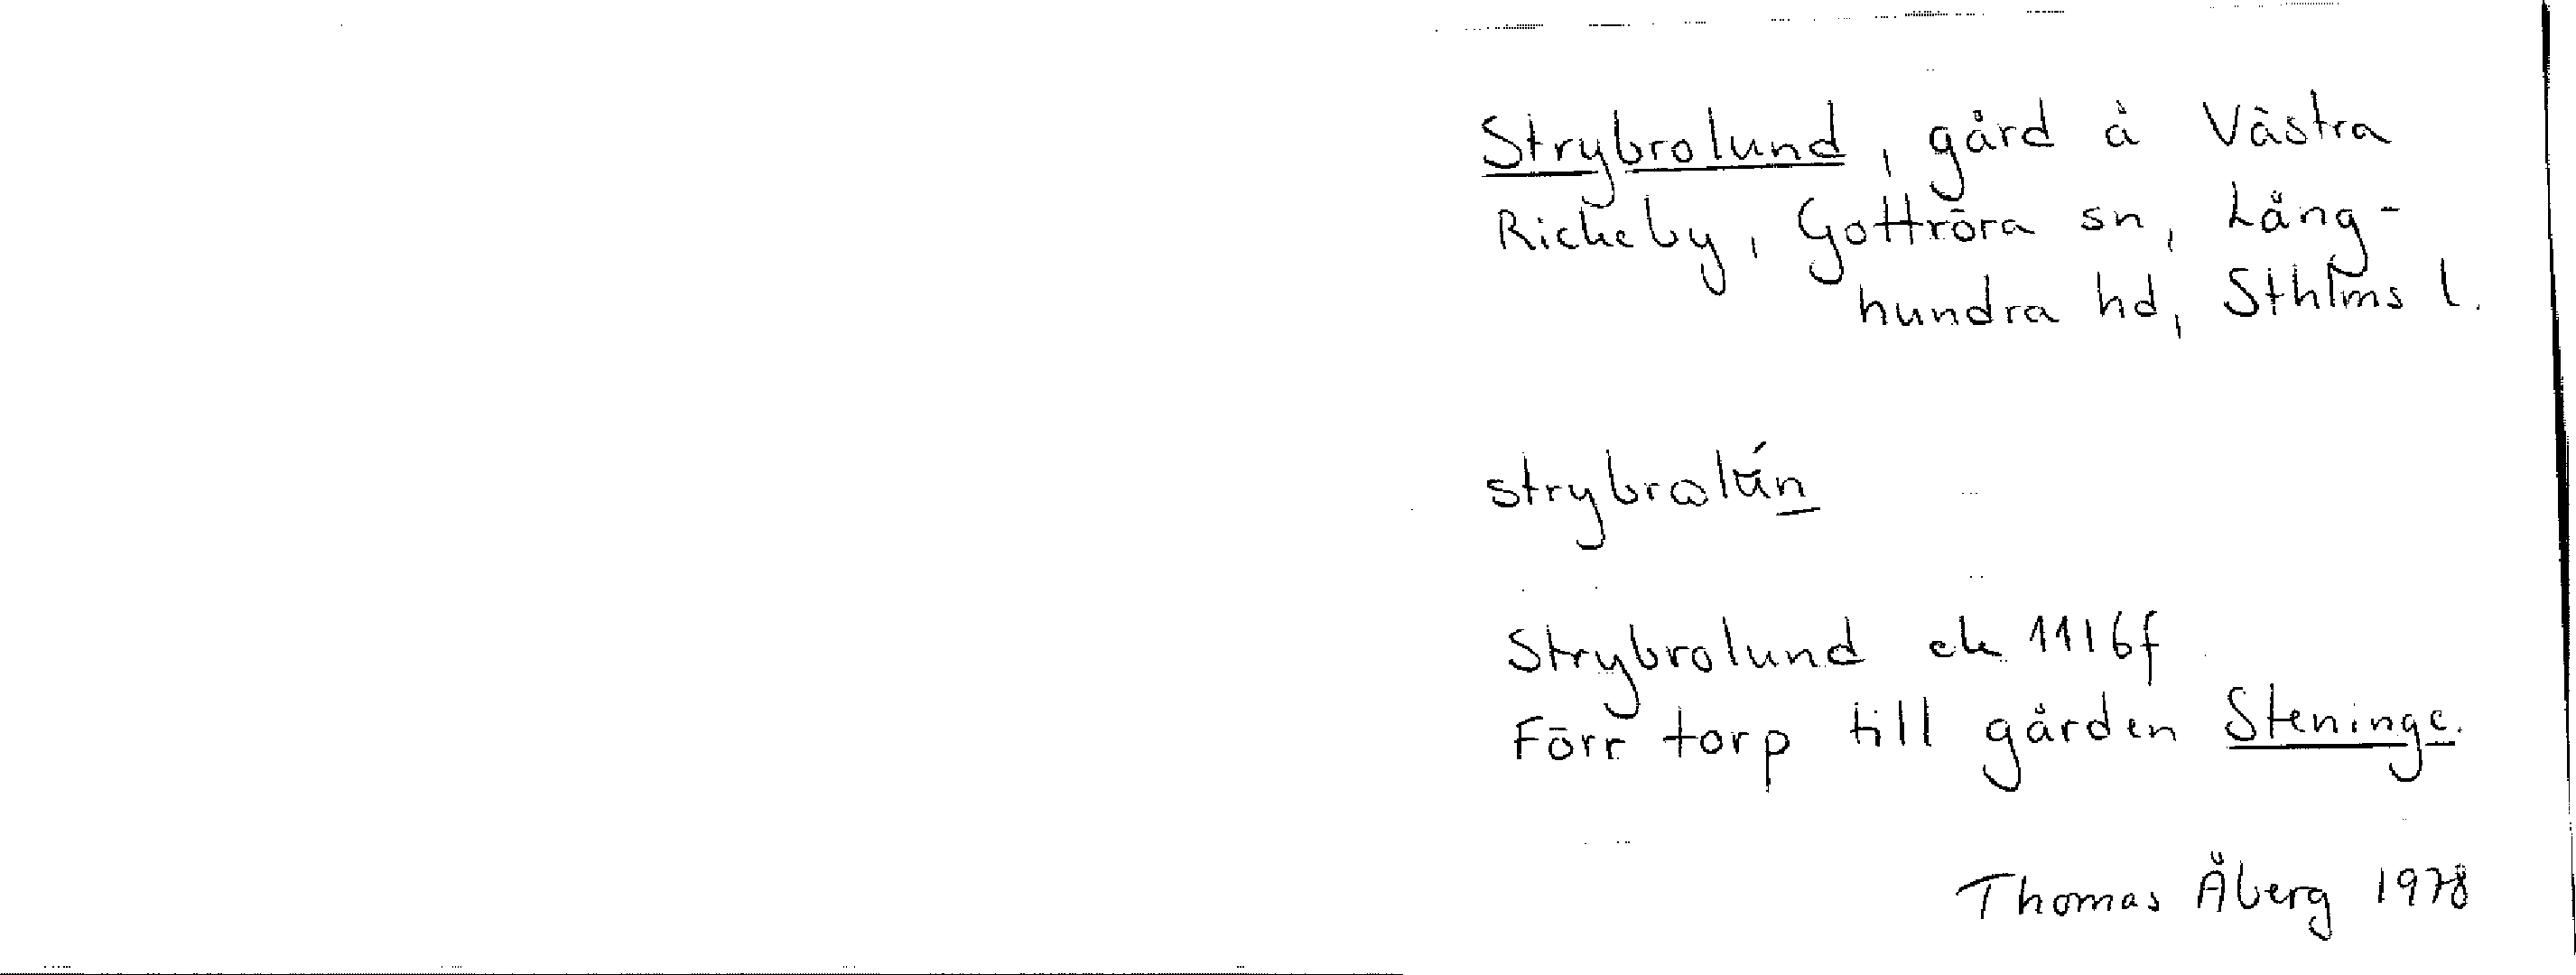 Strybrolund, gård å Västra
Rickeby, Gottröra sn, Lång-
hundra hd, Sthlms l.
Strybrolund ek 11I6f
Förr torp till gården Steninge.
Thomas Åberg 1978